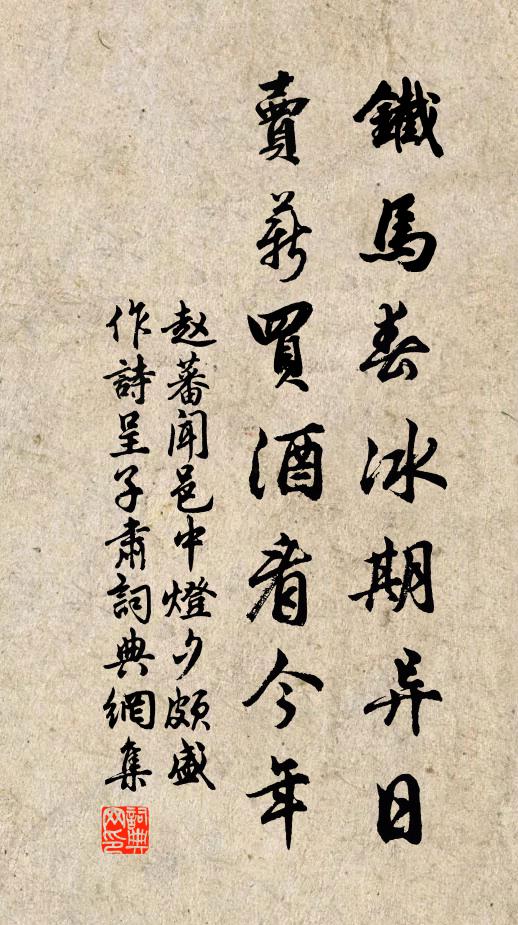 鐵馬春冰期异日
賣薪買酒看今年
赵蕃闻邑中燈夕頗盛
作詩呈子肅詞典網集
詞典网印